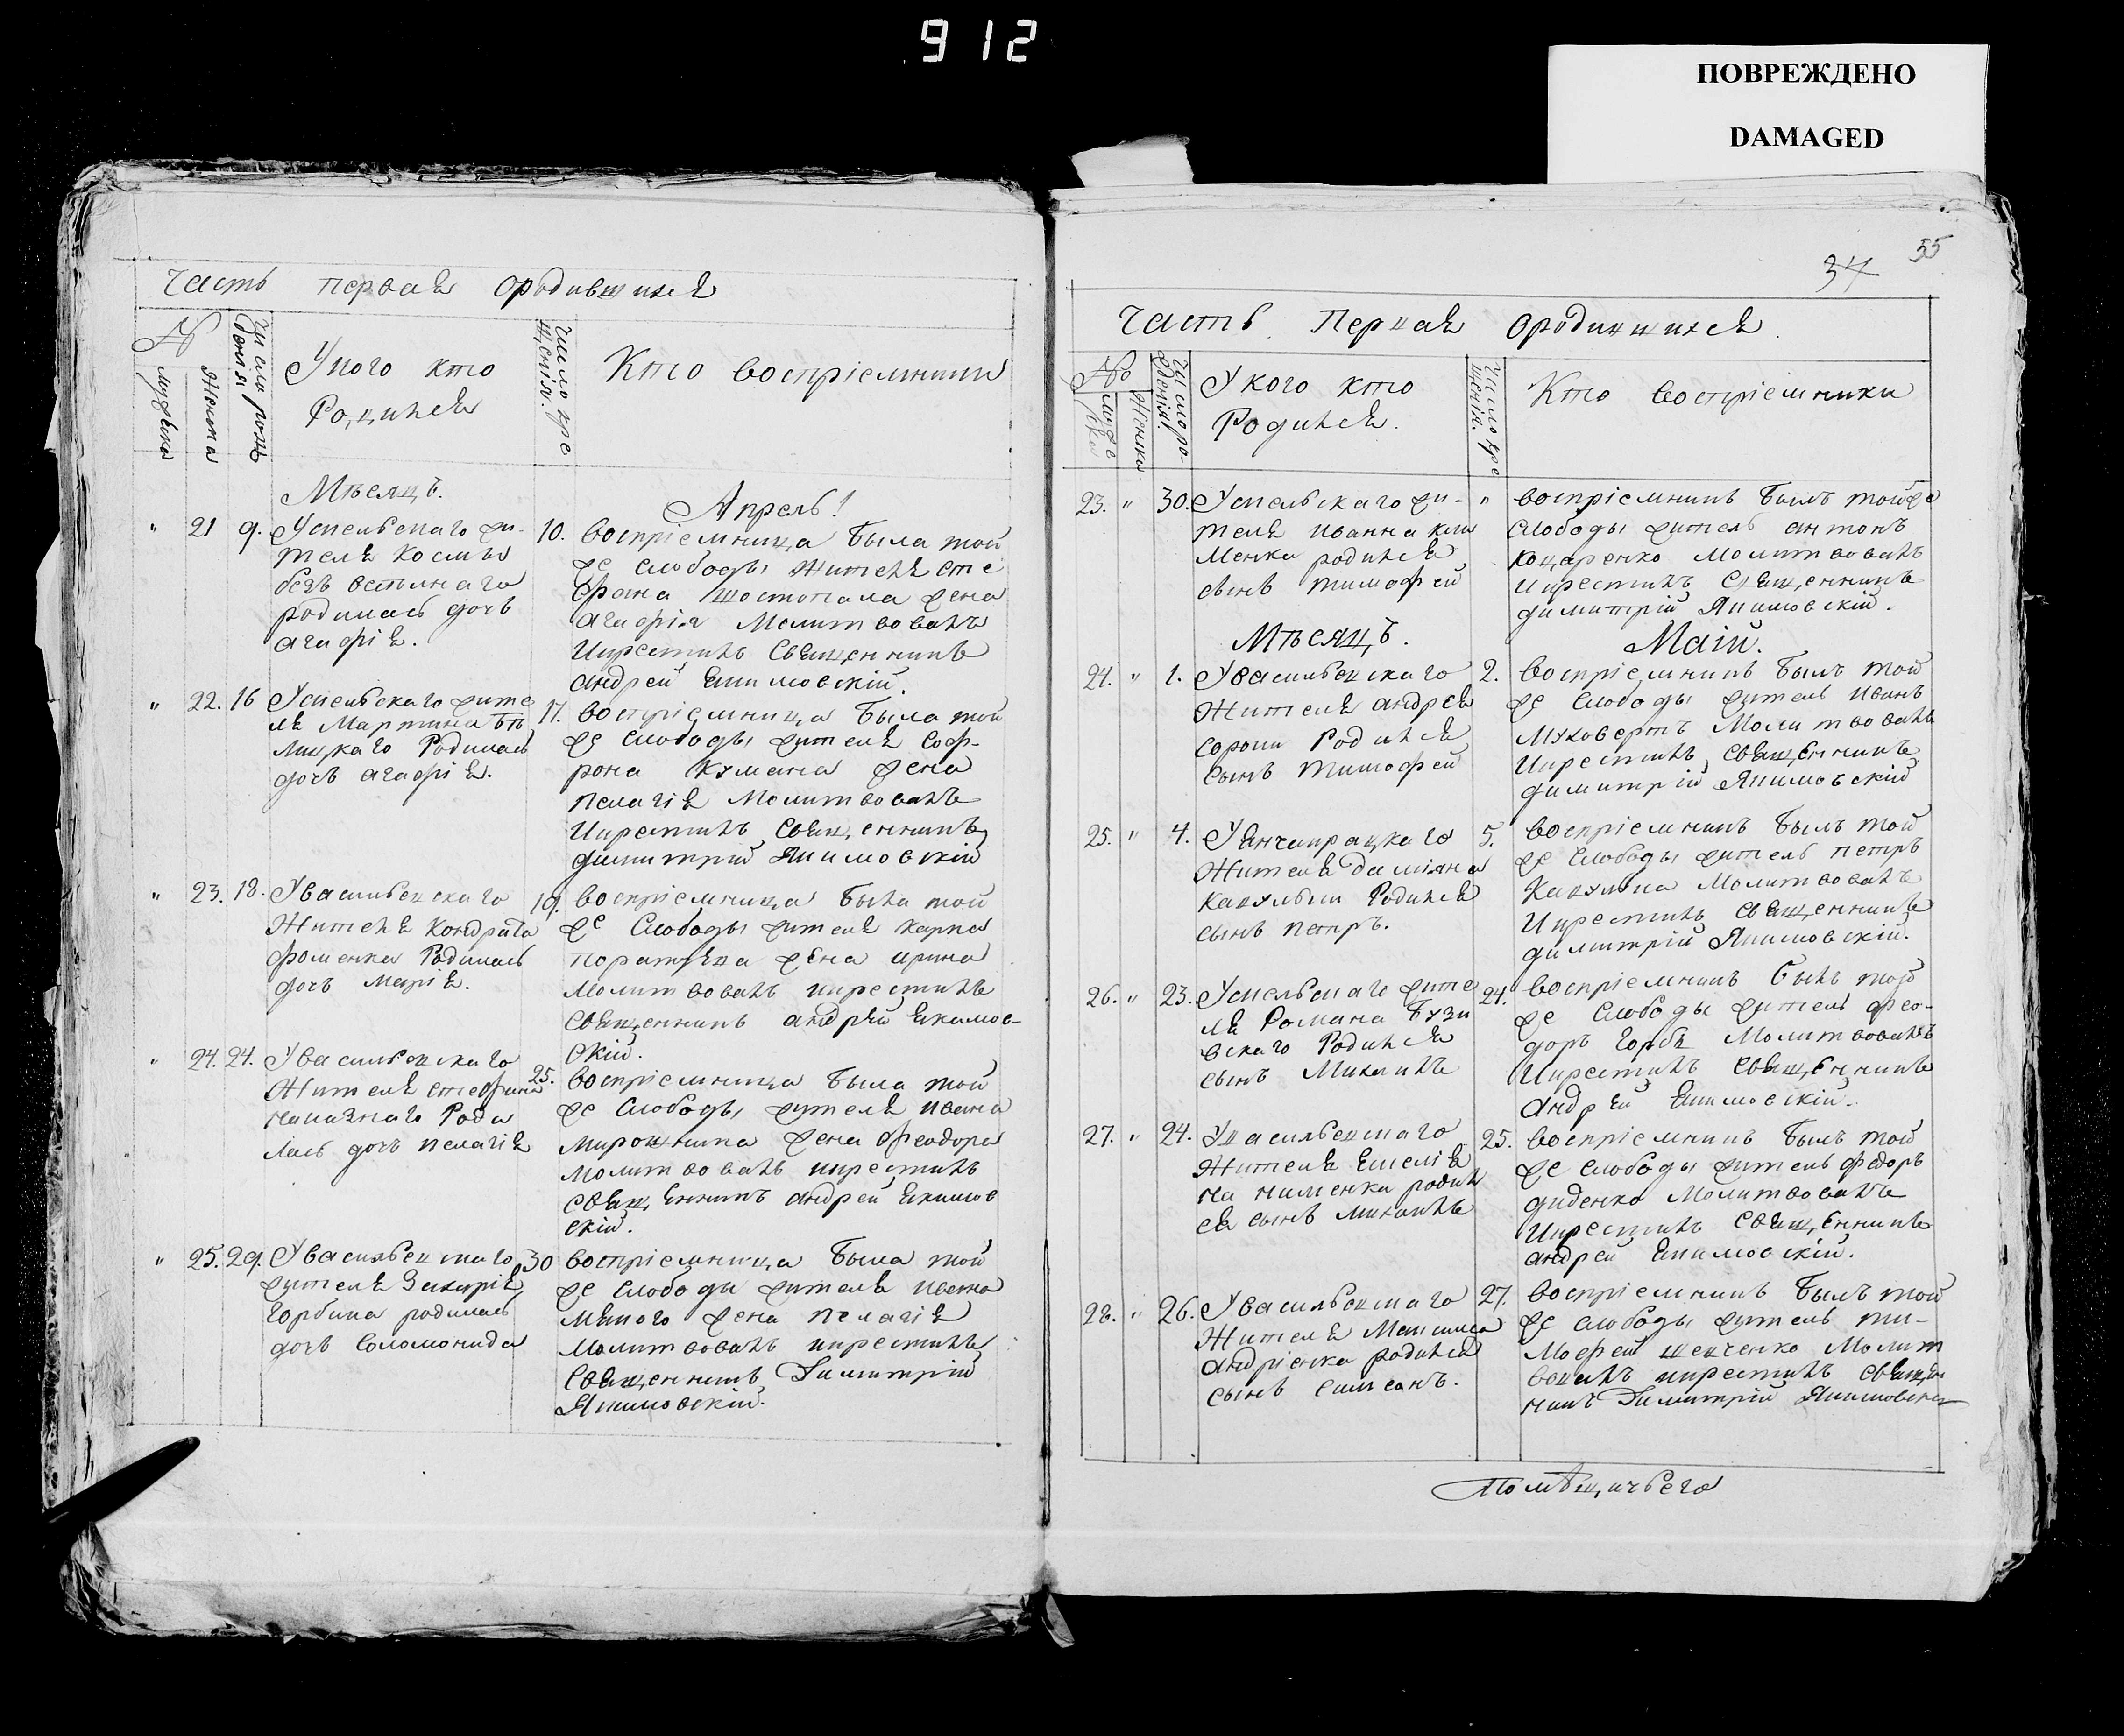 912
ПОВРЕЖДЕНО
DAMAGED
часть первая ородившихся
№
мужеска
женска
число рож
дения
У кого кто
Родился
число кре
щенія.
Кто воспріемники
Мѣсяцъ.
Апрель!
" 21 9. Успенскаго жи-
теля Космы
безъ
родилась дочь
агафія.
10. воспріемница была той
же слободы жителя сте
фана шостопала жена
агафія Молитвовалъ
икрестилъ священникъ
андрей Екимовскій.
" 22. 16 Успенскаго жите
ля Мартина Бѣ
лицкаго Родилась
дочь агафія.
17. воспріемница была той
же слободы жителя Соф-
рона Кумана жена
пелагія Молитвовалъ
икрестилъ священникъ
димитрій Якимовскій
" 23. 18. У васильевскаго
Жителя Кондрата
фоменка Родилась
дочь марія.
19. воспріемница была той
же слободы жителя карпа
жена ирина
молитвовалъ икрестилъ
священникъ андрей Екимов-
скій.
" 24. 24. У васильевскаго
Жителя стефана
Роди
лась дочь пелагія
25. воспріемница была той
же слободы жителя ивана
мирошника жена феодора
молитвовалъ икрестилъ
священникъ андрей Екимов
скій.
" 25. 29. У васильевскаго
жителя Захарія
горбика родилась
дочь соломонида
30 воспріемница была той
же слободы жителя ивана
жена пелагія
молитвовалъ икрестилъ
священникъ Димитрій
Якимовскій.
55
34
Часть Первая ородившихся
№
муже
ска
Женска
число ро-
жденія.
У кого кто
Родился.
число кре
щенія.
Кто воспріемники
23. " 30. Успенскаго жи-
теля иванна кли
менка родился
сынъ тимофей
" воспріемникъ былъ тойже
слободы житель антонъ
коцаренко молитвовалъ
икрестилъ священникъ
димитрій Якимовскій.
Мѣсяцъ.
Маій.
24. " 1. У васильевскаго
Жителя андрея
сороки Родился
сынъ тимофей
2. воспріемникъ былъ той
же слободы житель иванъ
муховертъ Молитвовалъ
икрестилъ священникъ
димитрій Якимовскій
25. " 4. У
Жителя даміяна
Родился
сынъ петръ.
5. воспріемникъ былъ той
же слободы житель петръ
молитвовалъ
икрестилъ священникъ
димитрій Якимовскій.
26. " 23. Успенскаго жите
ля Романа Бузи
вскаго Родился
сынъ Михаилъ
24. воспріемникъ былъ той
же слободы житель фео-
доръ горбъ молитвовалъ
икрестилъ священникъ
андрей Екимовскій.
27. " 24. У васильевскаго
Жителя Емелія
на клименка родил
ся сынъ михаилъ
25. воспріемникъ былъ той
же слободы житель федоръ
диденко молитвовалъ
икрестилъ священникъ
андрей Екимовскій.
28. " 26. У васильевскаго
Жителя Максима
андріенка родился
сынъ симеонъ.
27. воспріемникъ былъ той
же слободы житель ти-
мофей шевченко молит
вовалъ икрестилъ священ
никъ Димитрій Якимовскій
Помѣщичьего